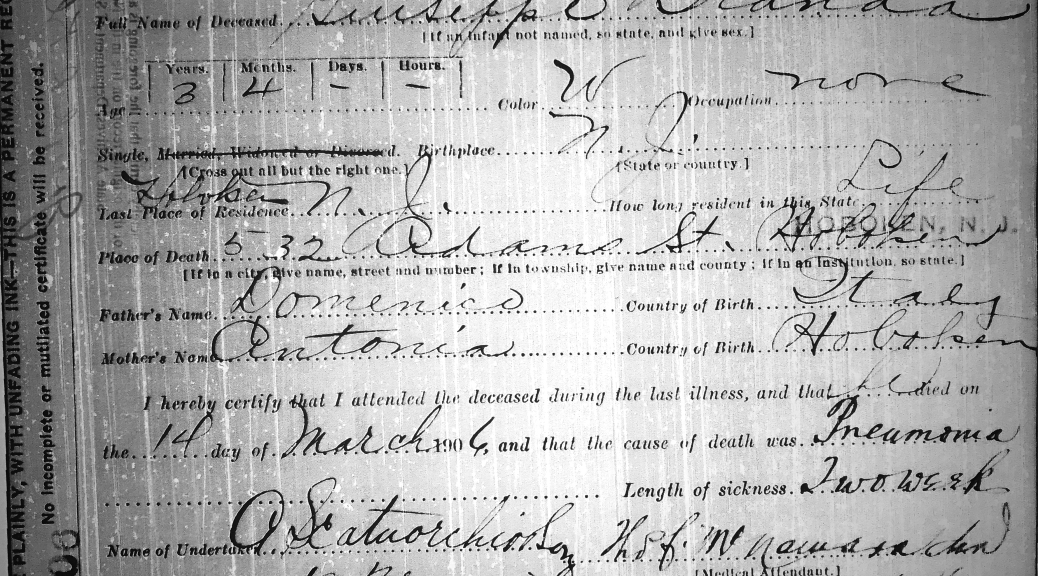 Full Name of Deceased Giuseppe
[If an infant not named, so state, and give sex.]
Years. Months. Days. Hours.
Age 3 4 - - Color W Occupation none
Single, Married, Widowed or Divorced. Birthplace N. J.
[Cross out all but the right one.] [State or country.]
Last Place of Residence Hoboken N. J. How long resident in this State Life
HOBOKEN, N. J.
Place of Death 532 Adams St. Hoboken
[If in a city, give name, street and number; if in township, give name and county; if in an institution, so state.]
Father's Name Domenico Country of Birth Italy
Mother's Name Antonia Country of Birth Hoboken
I hereby certify that I attended the deceased during the last illness, and that he died on
the 14 day of March 1906, and that the cause of death was Pneumonia
Length of sickness. Two week
Name of Undertaker
[Medical Attendant.]
PLAINLY, WITH UNFADING INK—THIS IS A PERMANENT
No incomplete or mutilated certificate will be received.